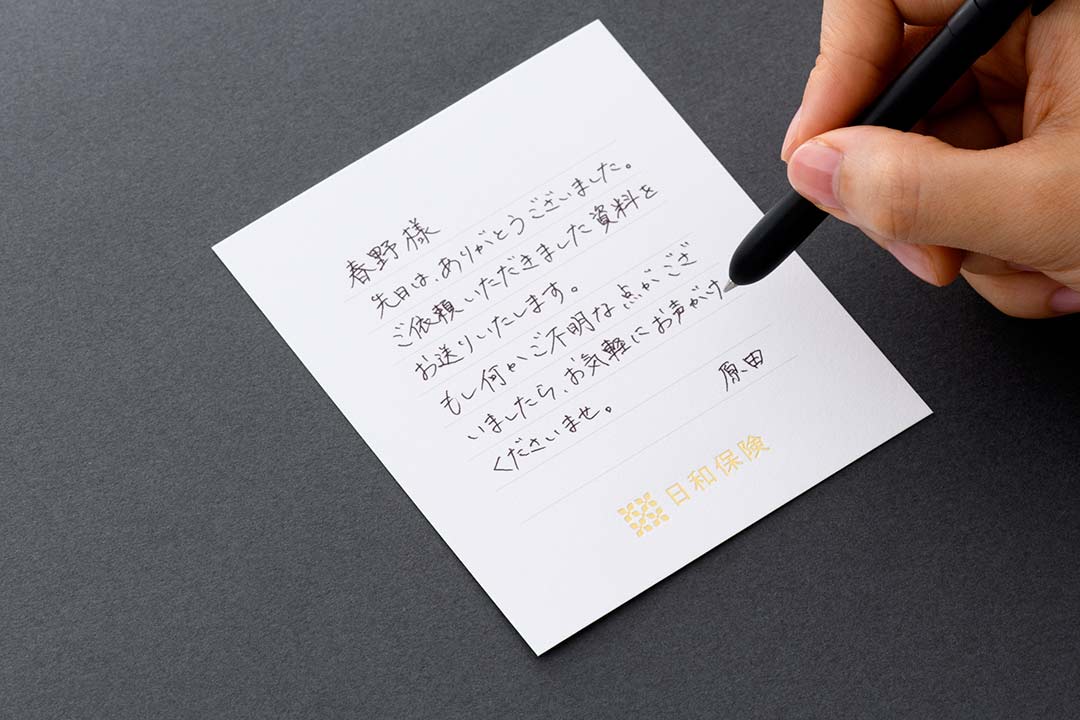 春野様
先日は、ありがとうございました。
ご依頼いただきました資料を
お送りいたします。
もし何かご不明な点がござ
いましたら、お気軽にお声がけ
くださいませ。
原田
日和保険